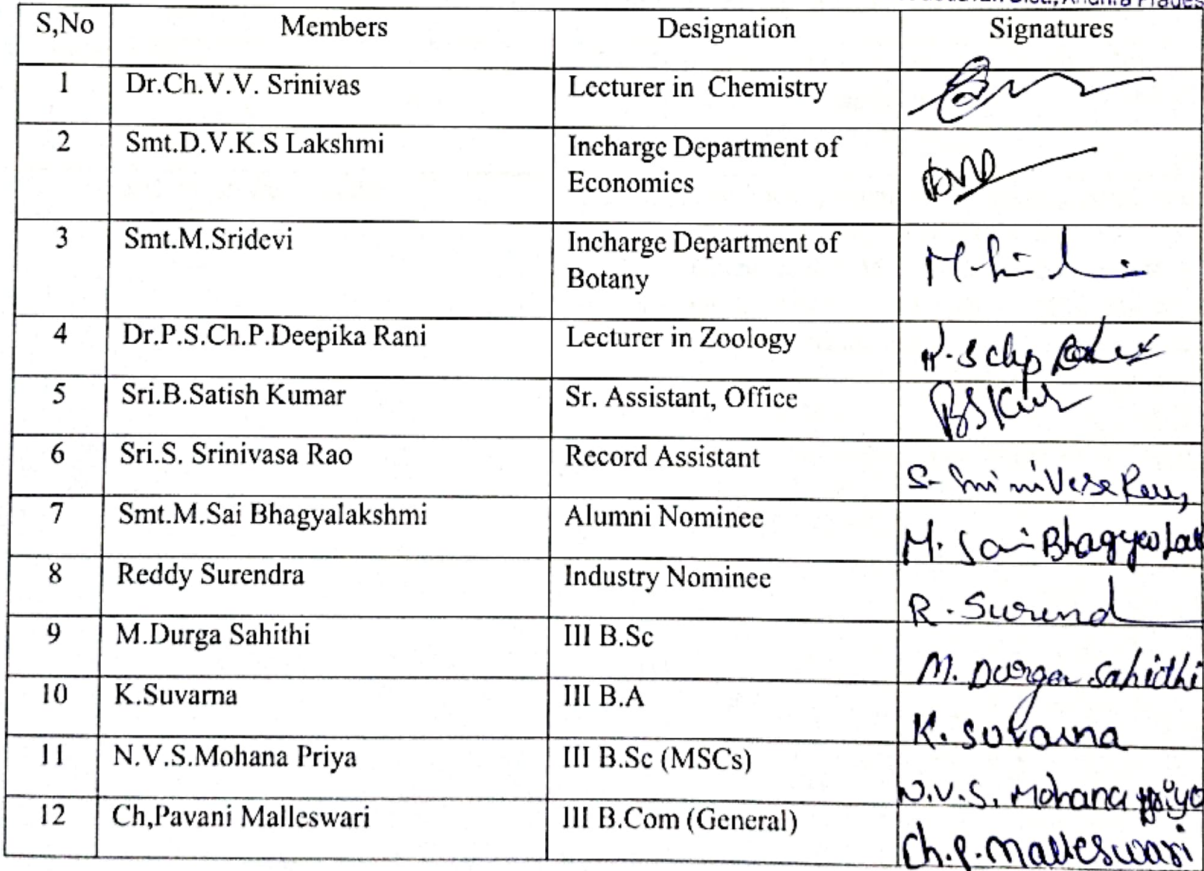 Dist., Andhra Prades
S,No Members Designation Signatures
1 Dr.Ch.V.V. Srinivas Lecturer in Chemistry
2 Smt.D.V.K.S Lakshmi Incharge Department of
Economics
3 Smt.M.Sridevi Incharge Department of
Botany
4 Dr.P.S.Ch.P.Deepika Rani Lecturer in Zoology
5 Sri.B.Satish Kumar Sr. Assistant, Office
6 Sri.S. Srinivasa Rao Record Assistant
7 Smt.M.Sai Bhagyalakshmi Alumni Nominee M. Sai Bhagya Lak
8 Reddy Surendra Industry Nominee R. Surend
9 M.Durga Sahithi III B.Sc M. Durga Sahithi
10 K.Suvarna III B.A K. Suvarna
11 N.V.S.Mohana Priya III B.Sc (MSCs) N.V.S. Mohana priya
12 Ch,Pavani Malleswari III B.Com (General) Ch.P. Malleswari